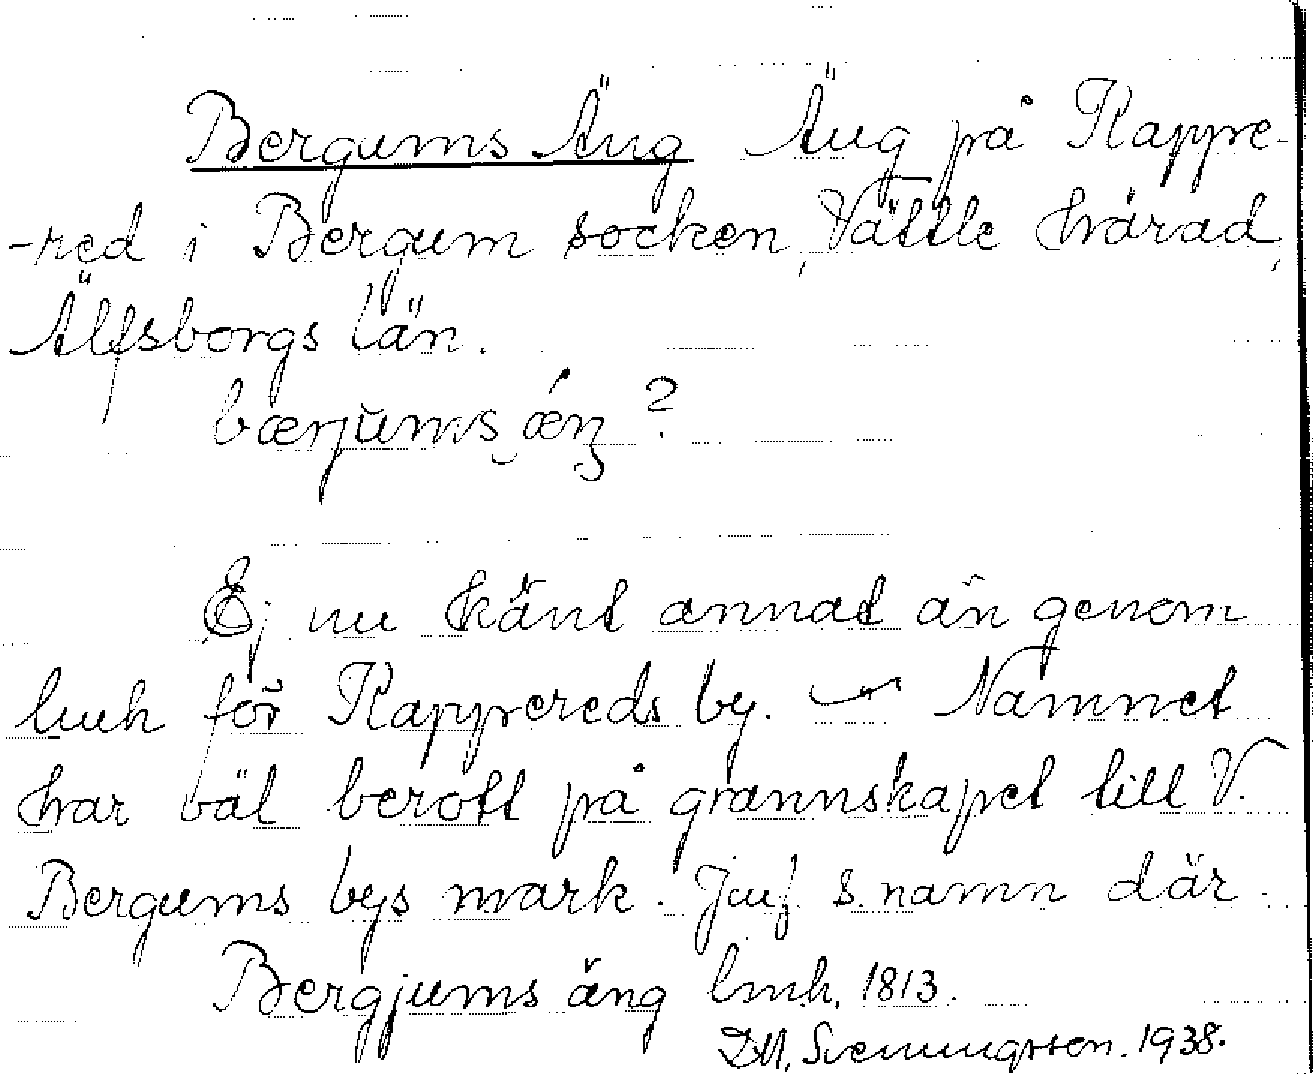 Bergums Äng Äng på Rappe-
-red i Bergum socken, Vättle härad,
Älfsborgs län.
bærjŭms ǽŋ ?
Ej nu känt annat än genom
lmh för Rappereds by. — Namnet
har väl berott på grannskapet till V.
Bergums bys mark. Jmf s. namn där.
Bergjums äng lmh, 1813.
D.M. Svenungsson. 1938.